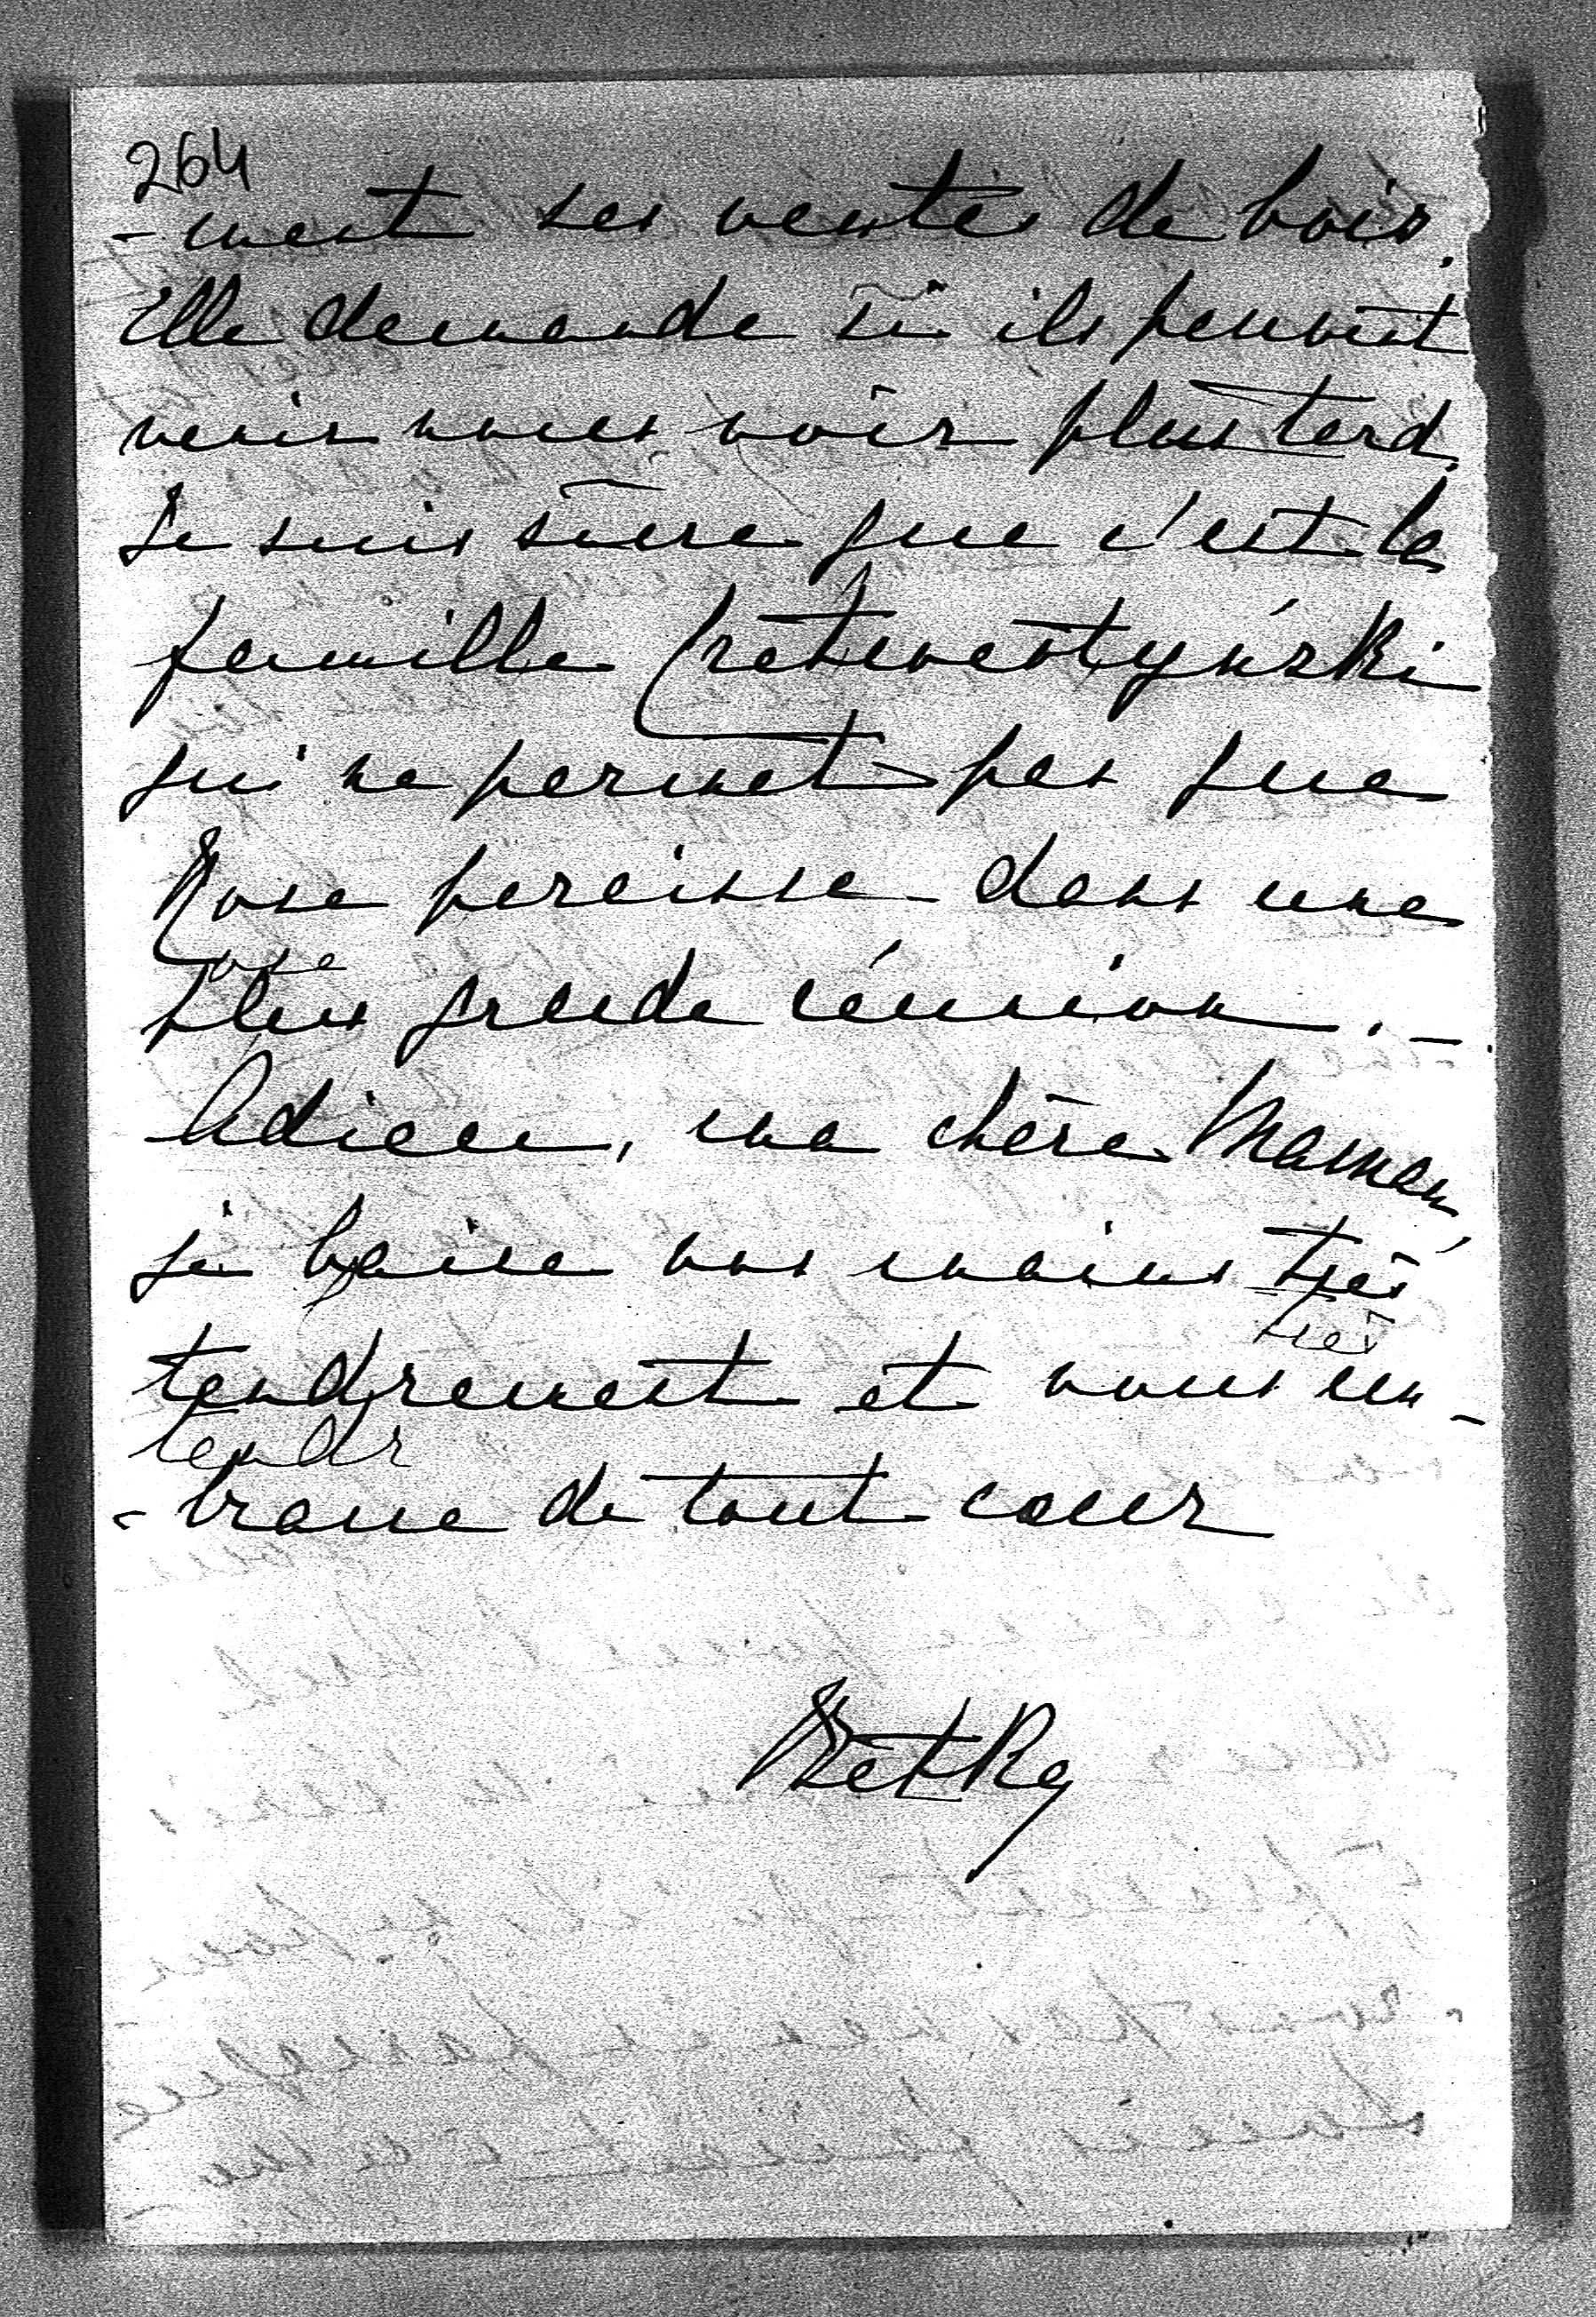 264
- ment ses ventes de bois.
Elle demande si ils peuvent
venir nous voir plus tard.
Je suis sûre que c'est la
famille
qui ne permet pas que
Rose paraisse dans une
ose
plus grande réunion. -
Adieu, ma chère Maman,
je baise vos mains très
très
tendrement et vous em-
tendr
- brasse de tout coeur
Betka